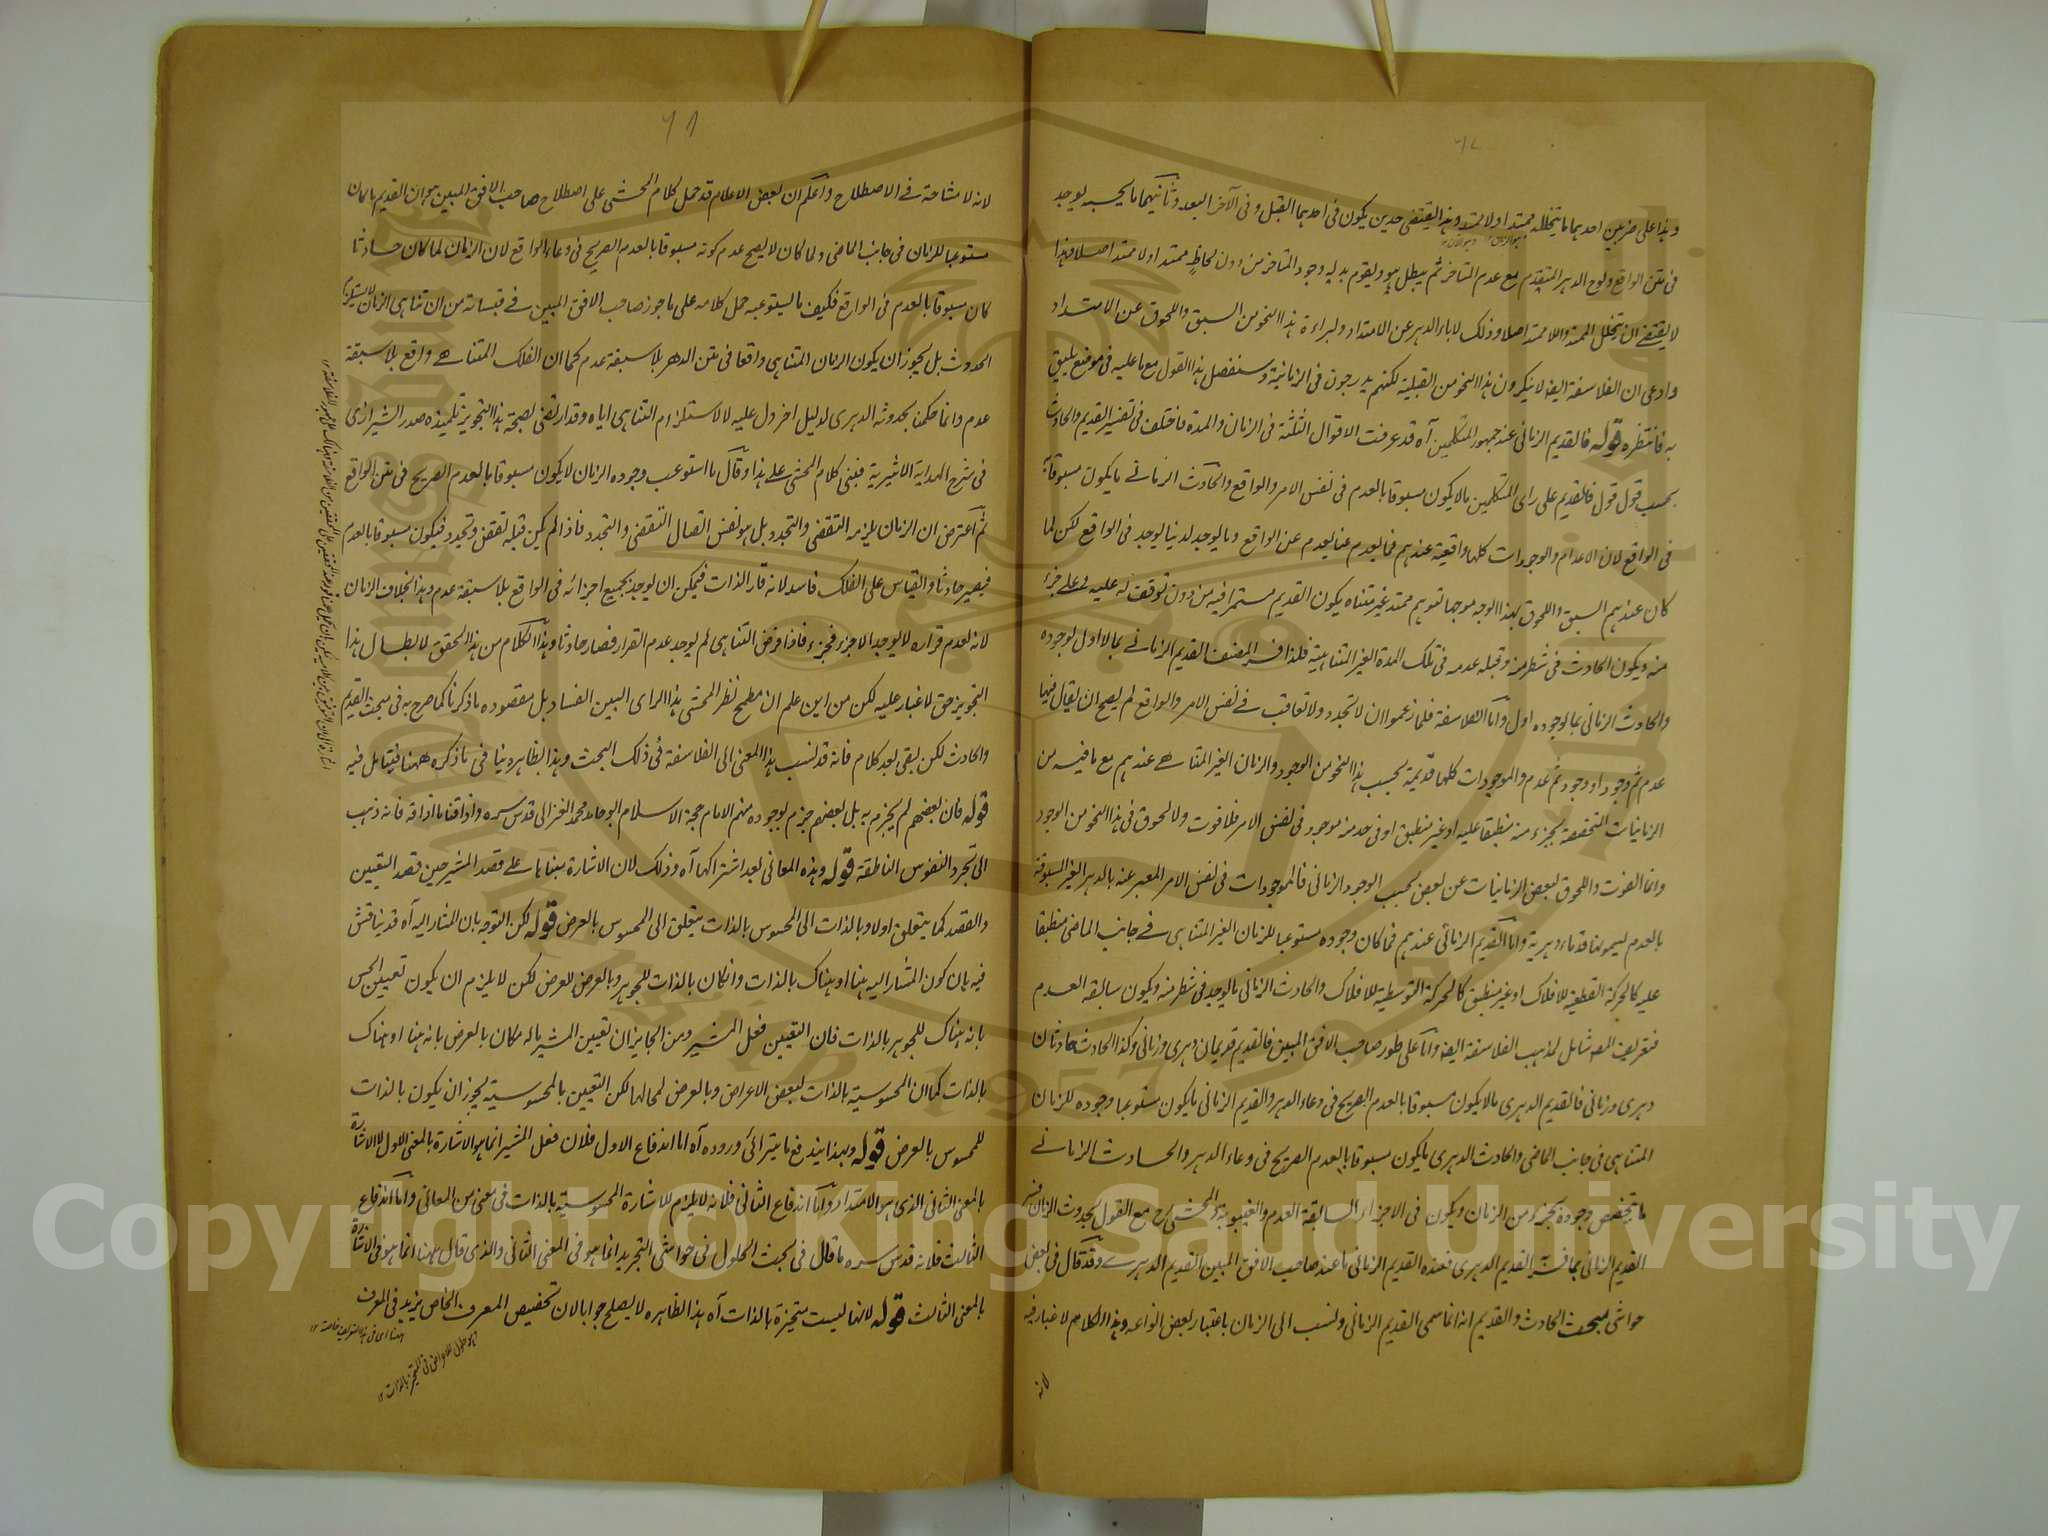 ٦٧
وهذا على ضربين احدهما ما يتخلله ممتد او لا ممتد وهذا يقتضي حدين يكون في احدهما القبل وفي الآخر البعد وثانيهما ما يحسبه يوجد
في متن الواقع ولوح الدهر المتقدم مع عدم المتاخر ثم يبطل هو ويقوم بدله وجود المتاخر من دون لحاظ ممتد او لا ممتد اصلا فهذا
لا يقتضي ان يتخلل الممتد واللا ممتد اصلا وذلك لاباء الدهر عن الامتداد ولبراءة هذا النحو من السبق واللحوق عن الامتداد
وادعى ان الفلاسفة ايضا لا ينكرون هذا النحو من القبلية لكنهم يدرجون في الزمانية وسنفصل هذا القول مع ما عليه في موضع يليق
به فانتظره قوله فالقديم الزماني عند جمهور المتكلمين آه قد عرفت الاقوال الثلثة في الزمان والمدة فاختلف في تفسير القديم والحادث
بحسب قول قول فالقديم على راى المتكلمين ما لا يكون مسبوقا بالعدم في نفس الامر والواقع والحادث الزماني ما يكون مسبوقا به
في الواقع لان الاعدام والوجودات كلها واقعية عندهم فما يعدم عنا يعدم عن الواقع وما يوجد لدينا يوجد في الواقع لكن لما
كان عندهم السبق واللحوق بهذا الوجه موجبا لتوهم ممتد غير متناه يكون القديم مستمرا فيه من دون توقف له عليه بل على جزء
منه ويكون الحادث في شطر منه وقبله عدمه في تلك المدة الغير المتناهية فلذا فسر المصنف القديم الزماني بما لا اول لوجوده
والحادث الزماني بما لوجوده اول واما الفلاسفة فلما زعموا ان لا تجدد ولا تعاقب في نفس الامر والواقع لم يصح ان يقال فيها
عدم ثم وجود او وجود ثم عدم والموجودات كلها قديمة بحسب هذا النحو من الوجود والزمان الغير المتناهي عندهم مع ما فيه من
الزمانيات المتخصصة بجزء منه منطبقا عليه او غير منطبق او في حد منه موجود في نفس الامر فلا فوت ولا لحوق في هذا النحو من الوجود
وانما الفوت واللحوق لبعض الزمانيات عن بعض بحسب الوجود الزماني فالموجودات في نفس الامر المعبر عنه بالدهر الغير المسبوقة
بالعدم يسمونها قدماء دهرية واما القديم الزماني عندهم فما كان وجوده مستوعبا للزمان الغير المتناهي في جانب الماضي منطبقا
عليه كالحركة القطعية للافلاك او غير منطبق كالحركة التوسطية للافلاك والحادث الزماني ما يوجد في شطر منه ويكون سابقه العدم
فتعريف المصنف شامل لمذهب الفلاسفة ايضا واما على طور صاحب الافق المبين فالقديم قديمان دهري وزماني وكذا الحادث حادثان
دهري وزماني فالقديم الدهري ما لا يكون مسبوقا بالعدم الصريح في وعاء الدهر والقديم الزماني ما يكون مستوعبا وجوده للزمان
المتناهي في جانب الماضي والحادث الدهري ما يكون مسبوقا بالعدم الصريح في وعاء الدهر والحادث الزماني
ما يتخصص وجوده بجزء من الزمان ويكون في الاجزاء السابقة العدم والغيبوبة والمحشي رح مع القول بحدوث الزمان فسر
القديم الزماني بما فسر به القديم الدهري فعنده القديم الزماني ما عند صاحب الافق المبين القديم الدهري وقد قال في بعض
حواشي مبحث الحادث والقديم انه انما سمي القديم الزماني ونسب الى الزمان باعتبار بعض انواعه وهذا الكلام لا غبار فيه
لانه
٦٨
لانه لا مشاحة في الاصطلاح واعلم ان بعض الاعلام قد حمل كلام المحشي على اصطلاح صاحب الافق المبين هو ان القديم ما كان
مستوعبا للزمان في جانب الماضي ولما كان لا يصح عدم كونه مسبوقا بالعدم الصريح في وعاء الواقع لان الزمان لما كان حادثا
كان مسبوقا بالعدم في الواقع فكيف ما يستوعبه حمل كلامه على ما جوز صاحب الافق المبين في قبساته من ان تناهي الزمان لا يستلزم
الحدوث بل يجوز ان يكون الزمان المتناهي واقعا في متن الدهر بلا سبقة عدم كما ان الفلك المتناهي واقع بلا سبقة
عدم وانما حكمنا بحدوثه الدهري لدليل اخر دل عليه لا لاستلزام التناهي اياه وقد ارتضى بصحة هذا التجويز تلميذه صدر الشيرازي
في شرح الهداية الاثيرية فبنى كلام المحشي على هذا وقال ما استوعب وجوده الزمان لا يكون مسبوقا بالعدم الصريح في متن الواقع
ثم اعترض ان الزمان يلزمه التقضي والتجدد بل هو نفس اتصال التقضي والتجدد فاذا لم يكن قبله تقض وتجدد فيكون مسبوقا بالعدم
فيصير حادثا والقياس على الفلك فاسد لانه قار الذات فيمكن ان يوجد بجميع اجزائه في الواقع بلا سبقة عدم وهذا بخلاف الزمان
لانه لعدم قراره لا يوجد الا جزء فجزء فاذا فرض التناهي لم يوجد عدم القرار فصار حادثا وهذا الكلام من هذا المحقق لابطال هذا
التجويز حق لا غبار عليه لكن من اين علم ان مطمح نظر المحشي هذا الراى البين الفساد بل مقصوده ما ذكرنا كما صرح به في مبحث القديم
والحادث لكن بقي بعد كلام فانه قد نسب هذا المعنى الى الفلاسفة في ذلك المبحث وهذا بظاهره ينافي ما ذكره ههنا فليتأمل فيه
قوله فان بعضهم لم يجزم به بل بعضهم جزم بوجوده منهم الامام حجة الاسلام ابو حامد محمد الغزالي قدس سره واذاقنا ما اذاقه فانه ذهب
الى تجرد النفوس الناطقة قوله وهذه المعاني بعد اشتراكها آه وذلك لان الاشارة مبناها على قصد المشيرحين قصد التعيين
والقصد كما يتعلق اولا وبالذات الى المحسوس بالذات يتعلق الى المحسوس بالعرض قوله لكن التوجه بان المشار اليه آه قد يناقش
فيه بان كون المشار اليه هنا او هناك بالذات وان كان بالذات للجوهر وبالعرض للعرض لكن لا يلزم ان يكون تعيين الحس
بانه هناك للجوهر بالذات فان التعيين فعل المشير ومن الجايز ان تعيين المشير ماله مكان بالعرض بانه هنا او هناك
بالذات كما ان المحسوسية بالذات لبعض الاعراض وبالعرض لمحالها لكن التعيين بالمحسوسية يجوز ان يكون بالذات
للمحسوس بالعرض قوله وبهذا يندفع ما يترائى وروده آه اما اندفاع الاول فلان فعل المشير انما هو الاشارة بالمعنى الاول لا الاشارة
بالمعنى الثاني الذي هو الامتداد واما اندفاع الثاني فلانه لا يلزم للاشارة المحسوسية بالذات في معنى من المعاني واما اندفاع
الثالث فلانه قدس سره ما قال في بحث الحلول في حواشي التجريد انما هو في المعنى الثاني والذي قال ههنا انما هو في الاشارة
بالمعنى الثالث قوله لانها ليست متحيزة بالذات آه هذا الظاهره لا يصلح جوابا لان تخصيص المعرف الخاص يزيد في المعرف